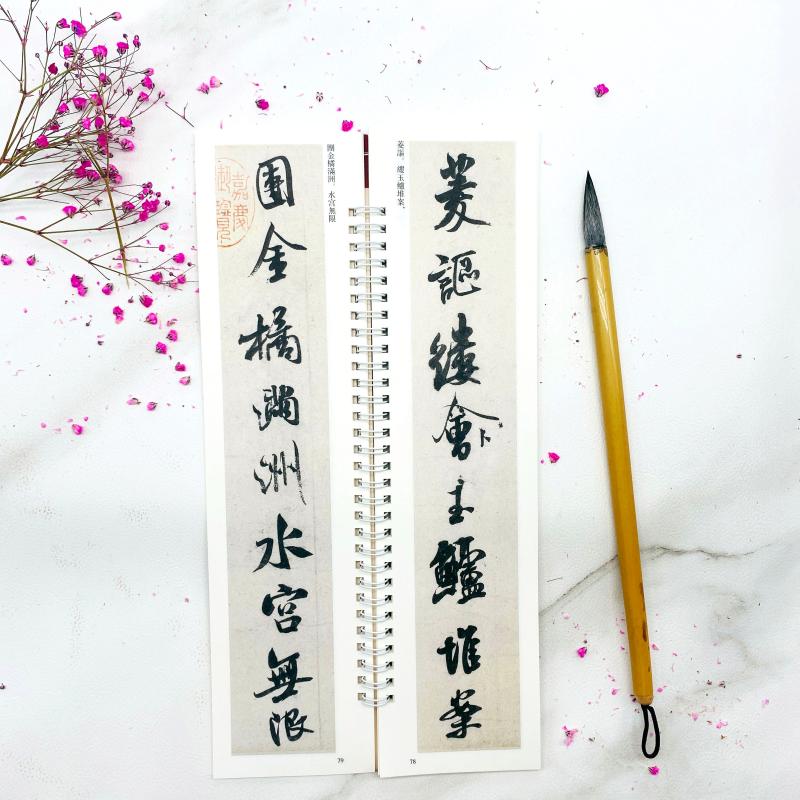 菱謳縷會玉鱸堆案
菱謳。縷玉鱸堆案,
78
團金橘滿洲。水宮無限
團金橘滿洲水宮無限
嘉慶
79